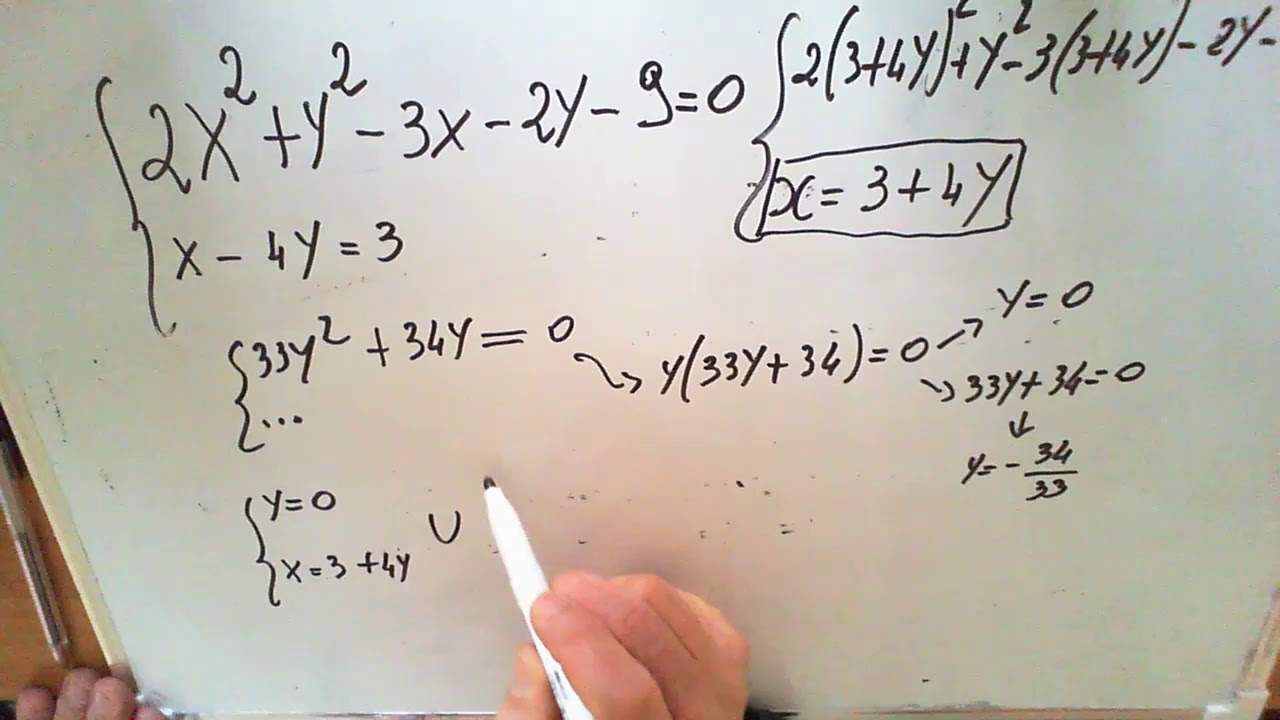 2x² + y² - 3x - 2y - 9 = 0
x - 4y = 3
2(3+4y)² + y² - 3(3+4y) - 2y -
x = 3 + 4y
33y² + 34y = 0
...
y(33y + 34) = 0
y = 0
33y + 34 = 0
y = - 34/33
y = 0
x = 3 + 4y
∪